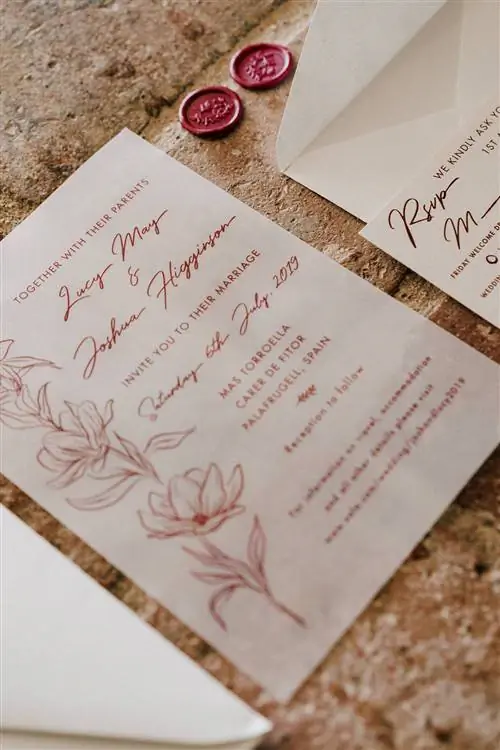 TOGETHER WITH THEIR PARENTS
Lucy May
&
Joshua Higginson
INVITE YOU TO THEIR MARRIAGE
Saturday 6th July, 2019
MAS TORROELLA
CARER DE FITOR
PALAFRUGELL, SPAIN
Reception to follow
For information on travel, accommodation
and all other details please visit
WE KINDLY ASK YO
1ST
Rsvp
M
FRIDAY WELCOME
WEDDING